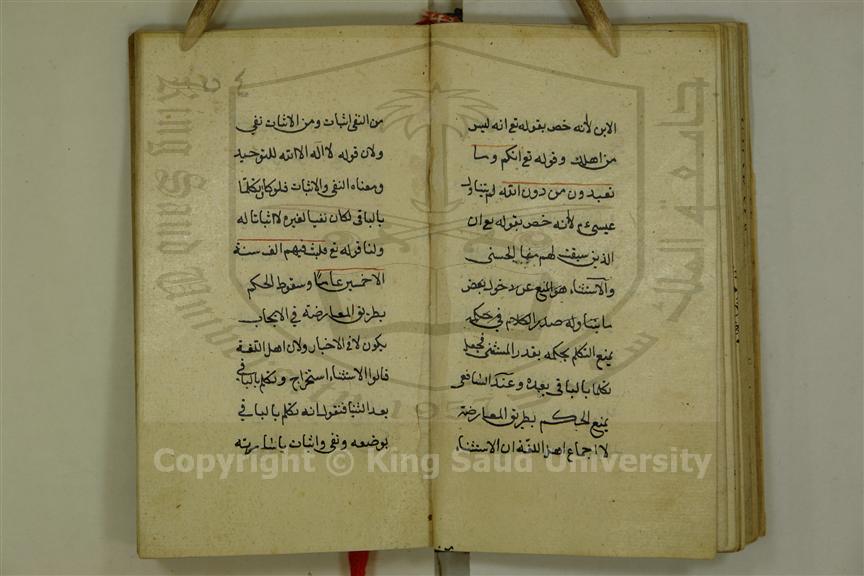 الابن لأنه خص بقوله تع انه ليس
من اهلك وقوله تع انكم وما
تعبدون من دون الله لم يتناول
عيسى ع م لأنه خص بقوله تع ان
الذين سبقت لهم منا الحسنى
والاستثناء هو المنع عن دخول بعض
ما يتناوله صدر الكلام في حكمه
يمنع التكلم بحكمه بقدر المستثنى فجعل
تكلما بالباقي بعده وعند الشافعي
يمنع الحكم بطريق المعارضة
لاجماع اهل اللغة ان الاستثناء
من
من النفي اثبات ومن الاثبات نفي
ولان قوله لا اله الا الله للتوحيد
ومعناه النفي والاثبات فلو كان تكلما
بالباقي لكان نفيا لغيره لا اثباتا له
ولنا قوله تع فلبث فيهم الف سنة
الا خمسين عاما وسقوط الحكم
بطريق المعارضة في الايجاب
يكون لا في الاخبار ولان اهل اللغة
قالوا الاستثناء استخراج وتكلم بالباقي
بعد الثنيا فنقول انه تكلم بالباقي
بوضعه ونفي واثبات باشارته
جامعة الملك سعود
King Saud University
1957
Copyright © King Saud University